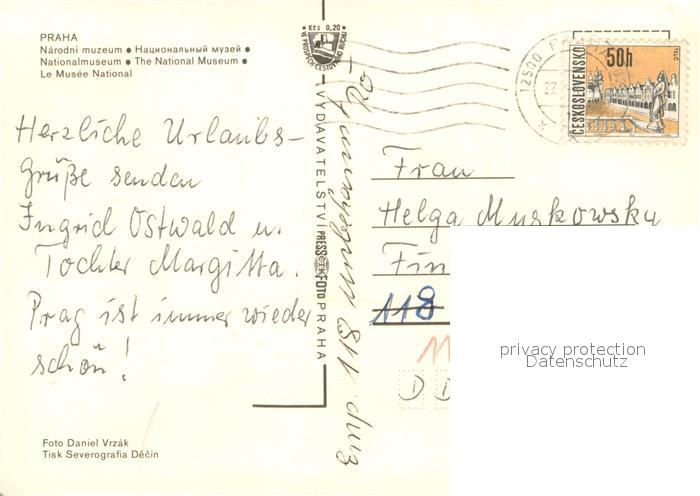 PRAHA
Národní muzeum ● Национальный музей ●
Nationalmuseum ● The National Museum ●
Le Musée National
Herzliche Urlaubs-
grüße senden
Ingrid Ostwald u.
Tochter Margitta.
Prag ist immer wieder
schön!
Foto Daniel Vrzák
Tisk Severografia Děčín
Kčs 0,20
VE PROSPĚCH CESTOVNÍHO RUCHU
VYDAVATELSTVÍ PRESSFOTO PRAHA
ČTK
12500
ČESKOSLOVENSKO
50h
TELČ
Frau
Helga Muskowsky
Fin
118
11
D D
privacy protection
Datenschutz